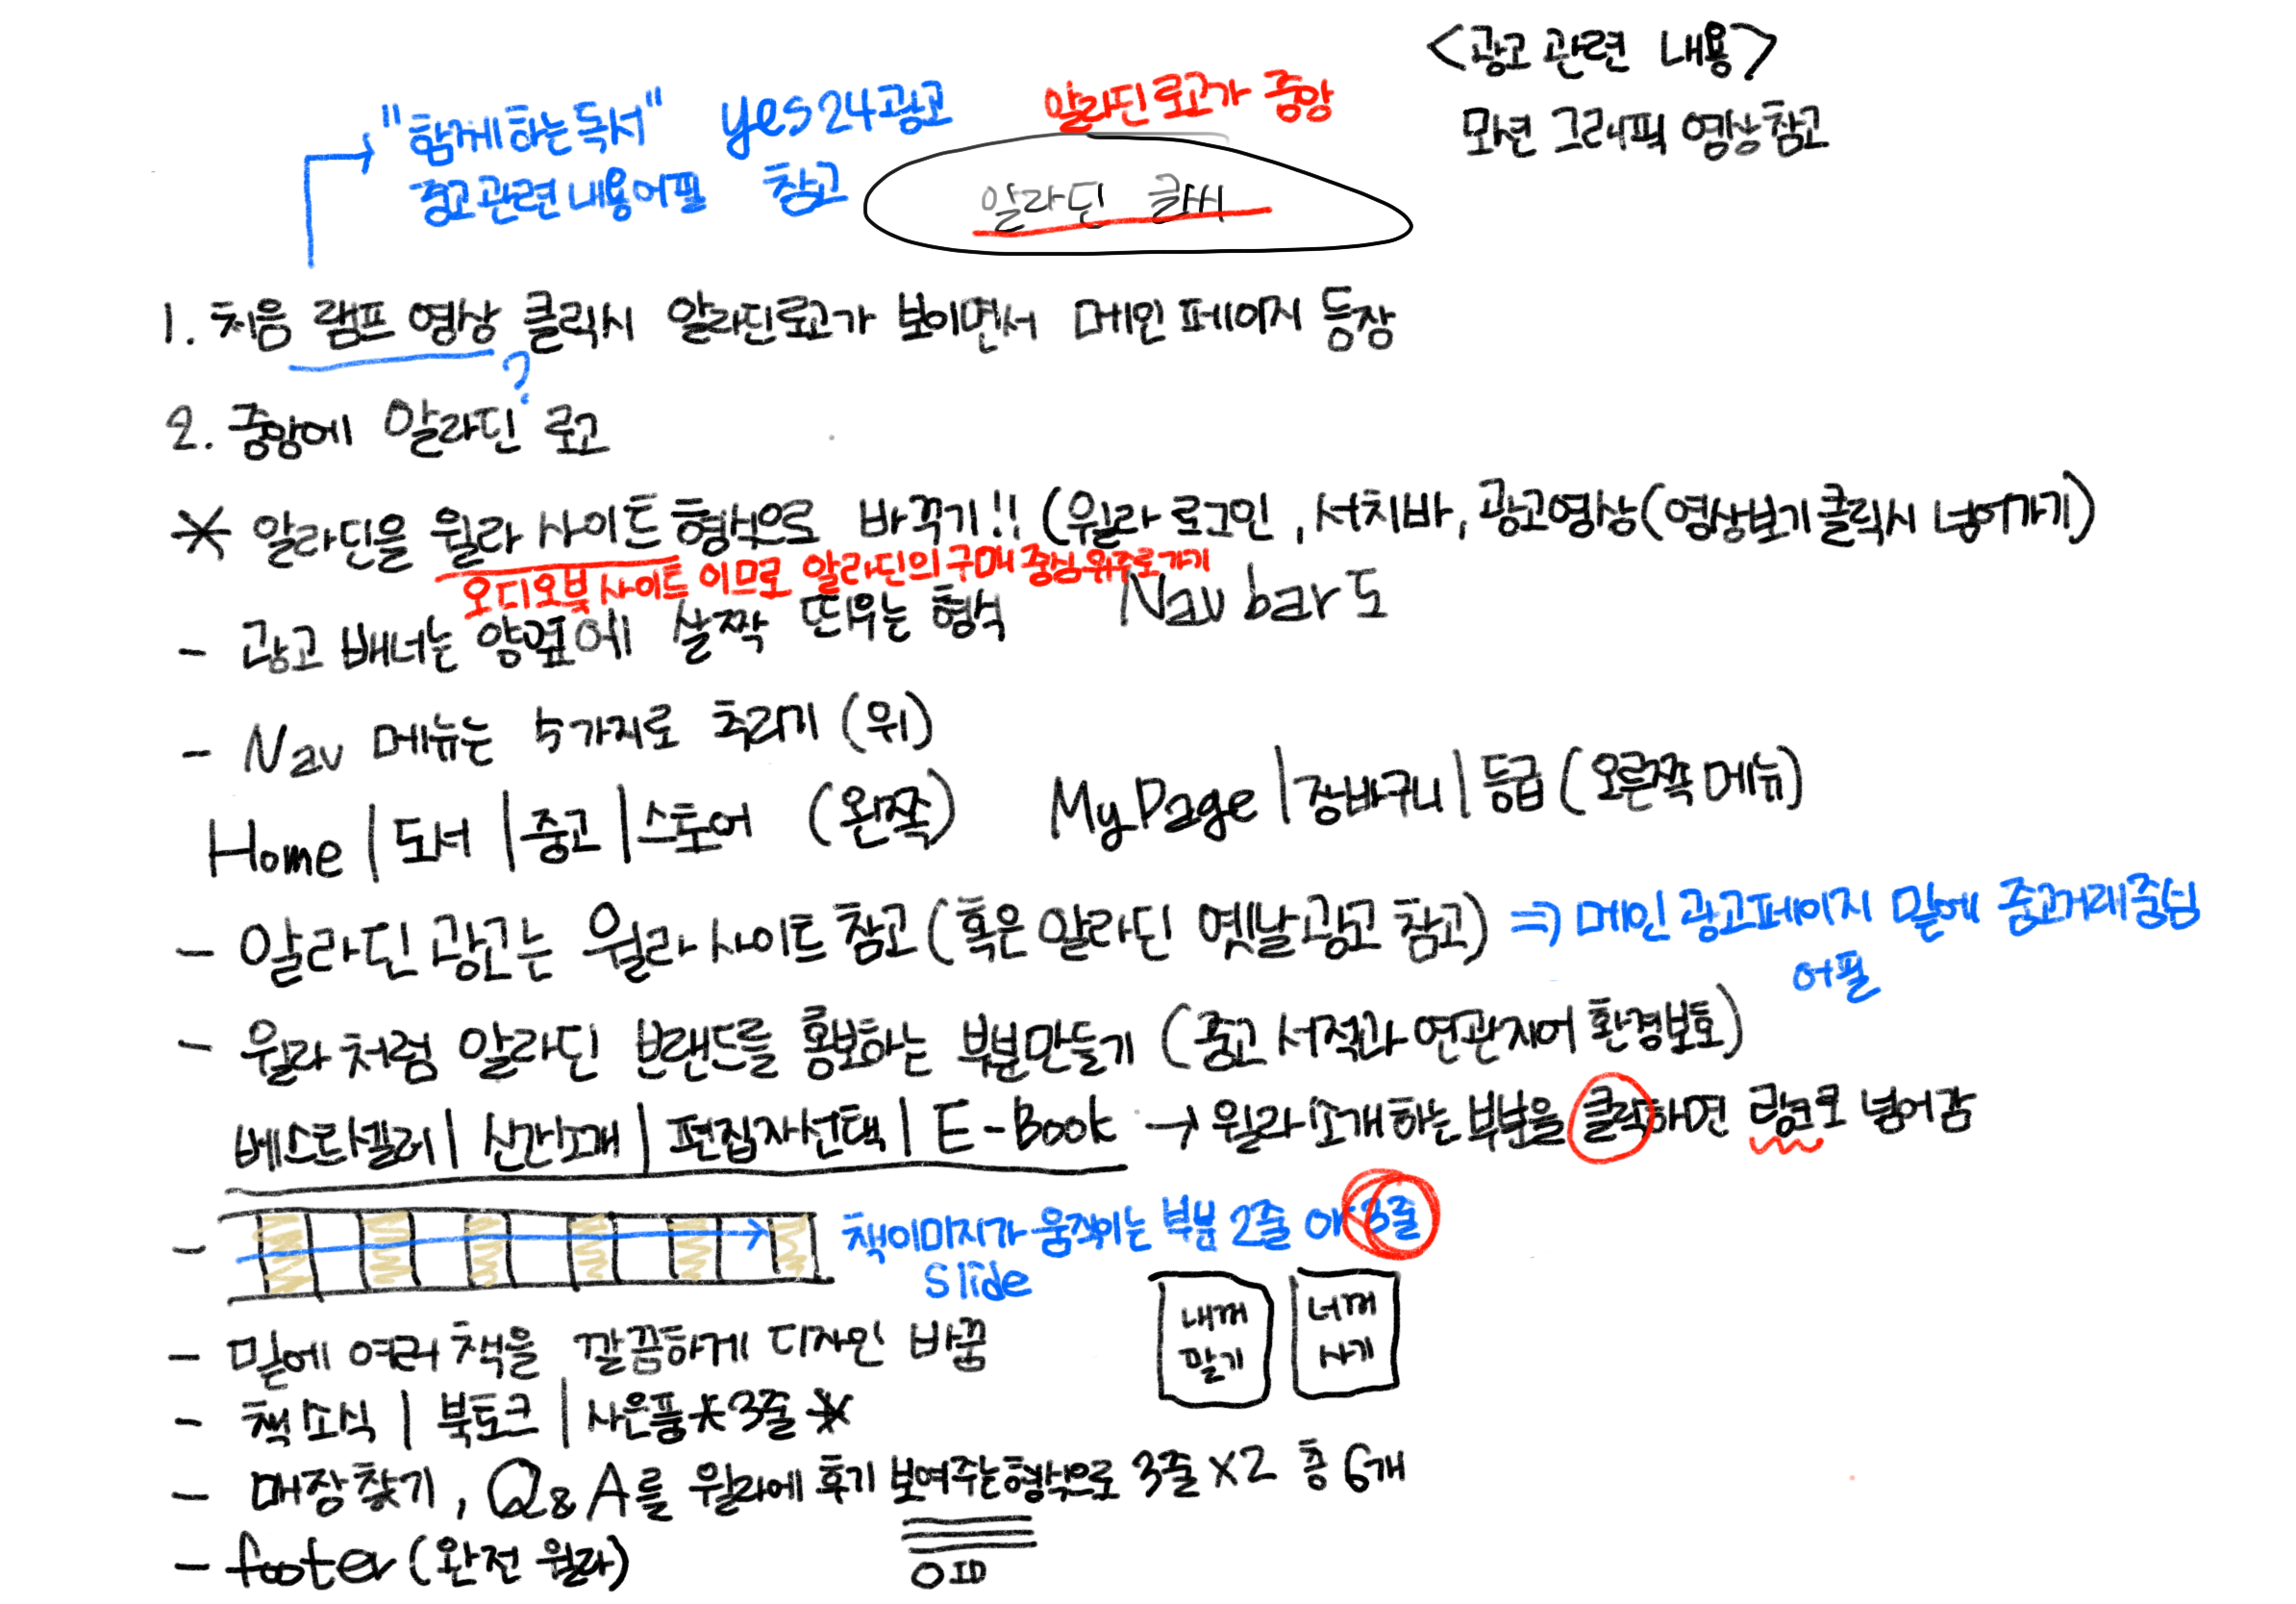 <광고 관련 내용>
모션 그래픽 영상참고
"함께하는독서" yes24광고
중고관련내용어필 참고
알라딘로고가 중앙
알라딘
1. 처음 램프 영상 클릭시 알라딘로고가 보이면서 메인페이지 등장
?
2. 중앙에 알라딘 로고
* 알라딘을 윌라 사이트 형식으로 바꾸기!! (윌라 로그인, 서치바, 광고영상(영상보기클릭시 넘어가기)
오디오북사이트 이므로 알라딘의 구매 중심위주로가기
Nav bar도
- 광고 배너는 양옆에 살짝 띄우는 형식
- Nav 메뉴는 5가지로 추리기 (위)
Home | 도서 | 중고 | 스토어 (왼쪽) MyPage | 장바구니 | 등급 (오른쪽 메뉴)
- 알라딘 광고는 윌라 사이트 참고 (혹은 알라딘 옛날 광고 참고) => 메인 광고페이지 밑에 중고거래중심
어필
- 윌라처럼 알라딘 브랜드를 홍보하는 부분만들기 (중고 서적과 연관지어 환경보호)
베스트셀러 | 신간소개 | 편집자선택 | E-Book → 윌라 소개하는 부분을 클릭하면 링크로 넘어감
- 책이미지가 움직이는 부분 2줄 or 3줄
Slide
내꺼
팔기
너꺼
사기
- 밑에 여러 책을 깔끔하게 디자인 바꿈
- 책소식 | 북토크 | 사은품 * 3줄 *
- 매장찾기, Q&A를 윌라에 후기 보여주는형식으로 3줄 X2 총 6개
O ID
- footer (완전 윌라)